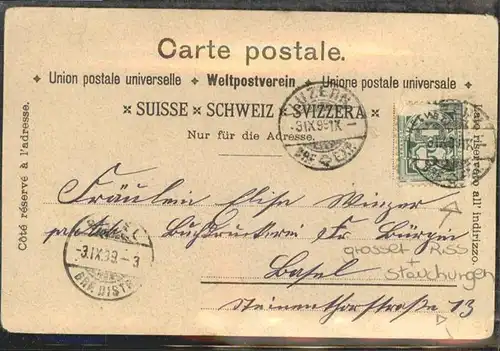 Carte postale.
Union postale universelle ✦ Weltpostverein ✦ Unione postale universale
SUISSE × SCHWEIZ × SVIZZERA
Nur für die Adresse.
Côté réservé à l'adresse.
Lato riservato all' indirizzo.
LUZERN
-3.IX.99.IX-
BRF. EXP.
Fräulein Elise Winzer
Buchdruckerei Fr. Bürgin
Basel
Steinenthorstraße 13
BASEL
-3.IX.99-3
BRF. DISTR.
grosser Riss
+
Stauchungen